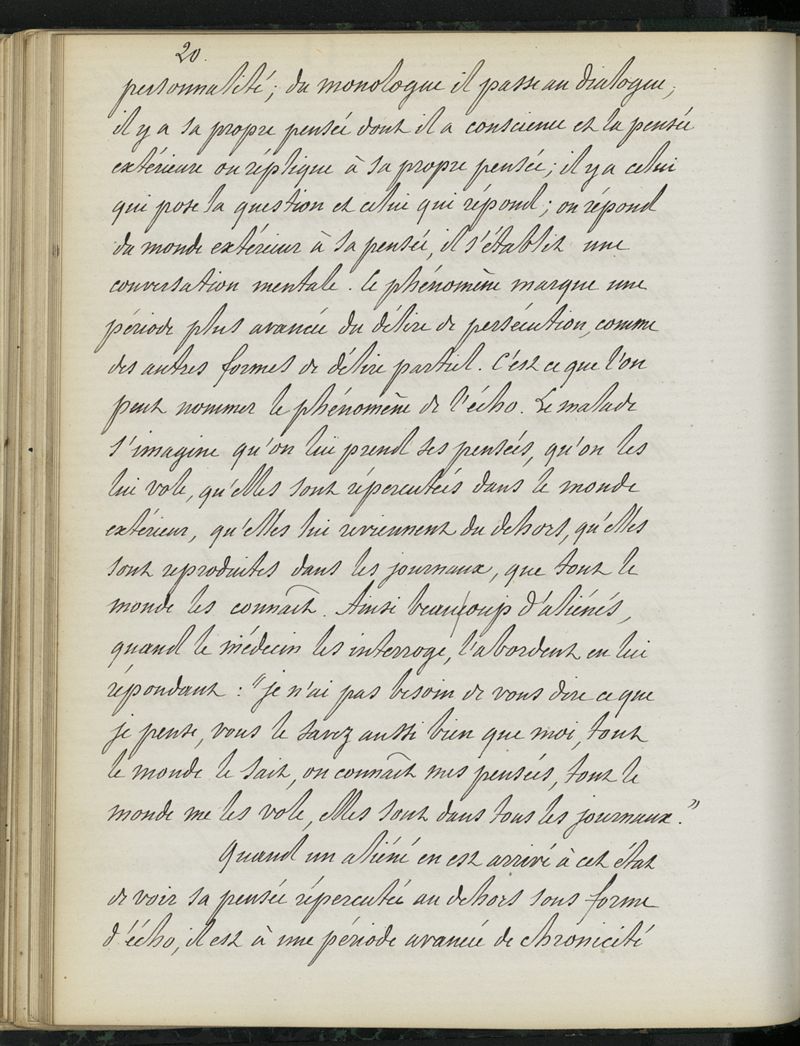 20.
personnalité ; du monologue il passe au dialogue ;
il y a sa propre pensée dont il a conscience et la pensée
extérieure ou réplique à sa propre pensée ; il y a celui
qui pose la question et celui qui répond ; on répond
du monde extérieur à sa pensée, il s'établit une
conversation mentale. Ce phénomène marque une
période plus avancée du délire de persécution, comme
des autres formes de délire partiel. C'est ce que l'on
peut nommer le phénomène de l'écho. Le malade
s'imagine qu'on lui prend ses pensées, qu'on les
lui vole, qu'elles sont répercutées dans le monde
extérieur, qu'elles lui reviennent du dehors, qu'elles
sont reproduites dans les journaux, que tout le
monde les connaît. Ainsi beaucoup d'aliénés,
quand le médecin les interroge, l'abordent en lui
répondant : "je n'ai pas besoin de vous dire ce que
je pense, vous le savez aussi bien que moi, tout
le monde le sait, on connaît mes pensées, tout le
monde me les vole, elles sont dans tous les journaux."
Quand un aliéné en est arrivé à cet état
de voir sa pensée répercutée au dehors sous forme
d'écho, il est à une période avancée de chronicité